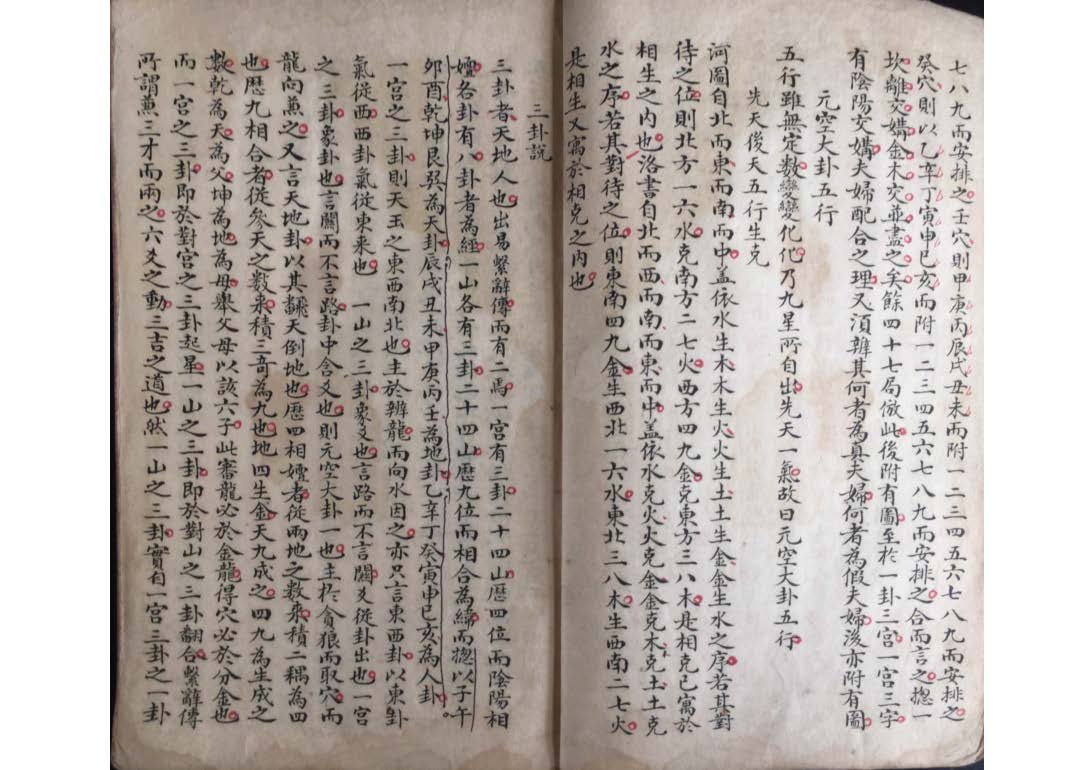 七八九而安排之壬穴則甲庚丙辰戌丑未而附一二三四五六七八九而安排之
癸穴則以乙辛丁寅申巳亥而附一二三四五六七八九而安排之合而言之揔一
坎離交媾金木交並盡之矣餘四十七局倣此後附有圖至於一卦三宮一宮三字
有陰陽交媾夫婦配合之理又湏辨其何者為真夫婦何者為假夫婦後亦附有圖
元空大卦五行
五行雖無定數變變化化乃九星所自出先天一氣故曰元空大卦五行
先天後天五行生克
河圖自北而東而南而中盖依水生木木生火火生土土生金金生水之序若其對
待之位則北方一六水克南方二七火西方四九金克東方三八木是相克已寓於
相生之內也洛書自北而西而南而東而中盖依水克火火克金金克木克土土克
水之序若其對待之位則東南四九金生西北一六水東北三八木生西南二七火
是相生又寓於相克之內也
三卦說
三卦者天地人也出易繫辭傳而有二焉一宮有三卦二十四山歷四位而陰陽相
嬗各卦有八卦者為經一山各有三卦二十四山歷九位而相合為緯而揔以子午
卯酉乾坤艮巽為天卦辰戌丑未甲庚丙壬為地卦乙辛丁癸寅申巳亥為人卦
一宮之三卦則天玉之東西南北也主於辨龍而向水因之亦只言東西卦以東卦
氣從西西卦氣從東来也 一山之三卦象爻也言路而不言關爻從卦出也一宮
之三卦象卦也言關而不言路卦中含爻也則元空大卦一也主扵貪狼而取穴而
龍向蕉之又言天地卦以其飜天倒地也歷四相嬗者從兩地之数来積二耦為四
也歷九相合者從參天之数来積三竒為九也地四生金天九成之四九為生成之
數乾為天為父坤為地為母舉父母以該六子此審龍必於金龍得穴必於分金也
而一宮之三卦即於對宮之三卦起星一山之三卦即於對山之三卦翻合繫辭傳
所謂蕉三才而兩之六爻之動三吉之道也然一山之三卦實自一宮三卦之一卦